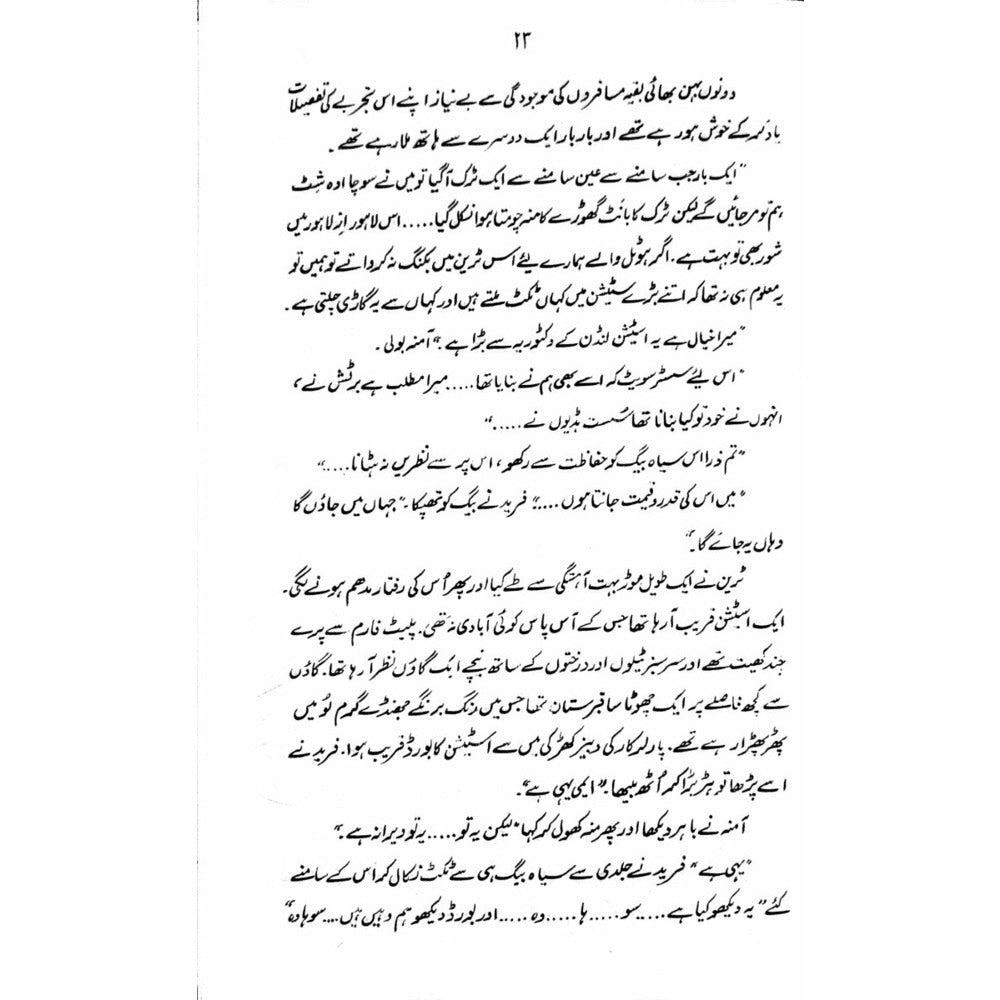 ۲۳
دونوں بہن بھائی بقیہ مسافروں کی موجودگی سے بے نیاز اپنے اس تجربے کی تفصیلات
یاد کر کے خوش ہو رہے تھے اور بار بار ایک دوسرے سے ہاتھ ملا رہے تھے۔
"ایک بار جب سامنے سے عین سامنے سے ایک ٹرک آگیا تو میں نے سوچا اوہ شِٹ
ہم تو مر جائیں گے لیکن ٹرک کا بانٹ گھوڑے کا منہ چومتا ہوا نکل گیا..... اس لاہور از لاہور میں
شور بھی تو بہت ہے۔ اگر ہوٹل والے ہمارے لئے اس ٹرین میں بکنگ نہ کرواتے تو ہمیں تو
یہ معلوم ہی نہ تھا کہ اتنے بڑے سٹیشن میں کہاں ٹکٹ ملتے ہیں اور کہاں سے یہ گاڑی چلتی ہے۔
"میرا خیال ہے یہ اسٹیشن لنڈن کے وکٹوریہ سے بڑا ہے۔" آمنہ بولی۔
"اس لئے سسٹر سویٹ کہ اسے بھی ہم نے بنایا تھا..... میرا مطلب ہے برٹش نے،
انہوں نے خود تو کیا بنانا تھا سُست ہڈیوں نے....."
"تم ذرا اس سیاہ بیگ کو حفاظت سے رکھو، اس پر سے نظریں نہ ہٹانا....."
"میں اس کی قدر و قیمت جانتا ہوں....." فرید نے بیگ کو تھپکا۔ "جہاں میں جاؤں گا
وہاں یہ جائے گا۔"
ٹرین نے ایک طویل موڑ بہت آہستگی سے طے کیا اور پھر اُس کی رفتار مدھم ہونے لگی۔
ایک اسٹیشن قریب آ رہا تھا جس کے آس پاس کوئی آبادی نہ تھی۔ پلیٹ فارم سے پرے
چند کھیت تھے اور سرسبز ٹیلوں اور درختوں کے ساتھ نیچے ایک گاؤں نظر آ رہا تھا۔ گاؤں
سے کچھ فاصلے پر ایک چھوٹا سا قبرستان تھا جس میں رنگ برنگے جھنڈے گرم لُو میں
پھڑپھڑا رہے تھے۔ پارلر کار کی دبیز کھڑکی میں سے اسٹیشن کا بورڈ قریب ہوا۔ فرید نے
اسے پڑھا تو ہڑبڑا کر اُٹھ بیٹھا۔ "ایمی یہی ہے"۔
آمنہ نے باہر دیکھا اور پھر منہ کھول کر کہا "لیکن یہ تو..... یہ تو ویرانہ ہے۔"
"یہی ہے" فرید نے جلدی سے سیاہ بیگ ہی سے ٹکٹ نکال کر اس کے سامنے
کئے "یہ دیکھو کیا ہے..... سو..... ہا..... وہ..... اور بورڈ دیکھو ہم وہیں ہیں.... سوہاوہ"